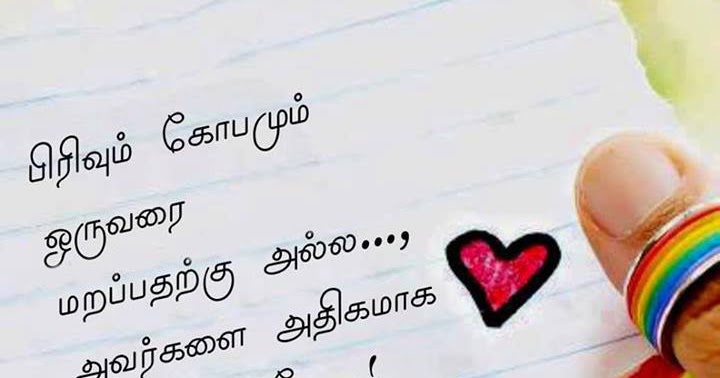 பிரிவும் கோபமும்
ஒருவரை
மறப்பதற்கு அல்ல...,
அவர்களை அதிகமாக